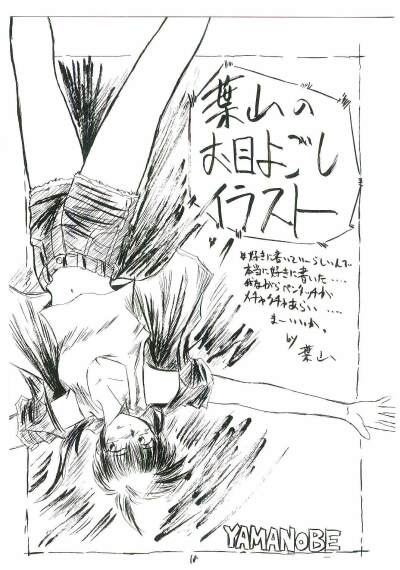 葉山の
お目よごし
イラスト
#好きに書いていーらしいんで
本当に好きに書いた....
我ながらペンタッチが
メチャクチャあらい....
まーいいか。
by 葉山
YAMANOBE